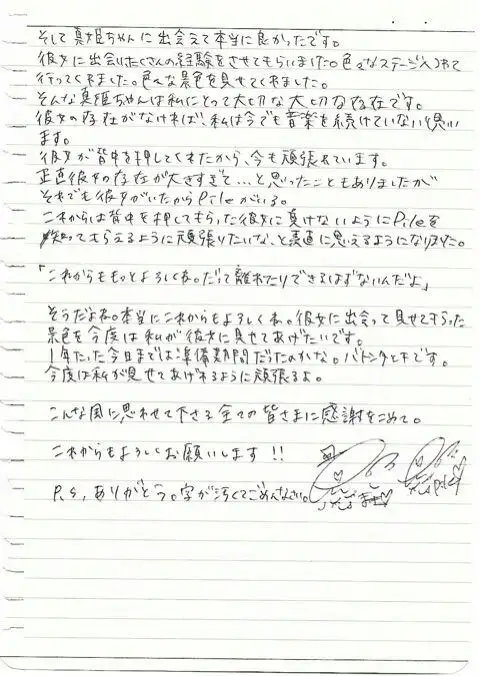 そして真姫ちゃんに出会えて本当に良かったです。
彼女に出会いたくさんの経験をさせてもらいました。色々なステージへつれて
行ってくれました。色々な景色を見せてくれました。
そんな真姫ちゃんは私にとって大切な大切な存在です。
彼女の存在がなければ、私は今でも音楽を続けていないと思い
ます。
彼女が背中を押してくれたから、今も頑張れています。
正直彼女の存在が大きすぎて…と思ったこともありましたが
それでも彼女がいたからPileがいる。
これからは背中を押してもらった彼女に負けないようにPileを
知ってもらえるように頑張りたいな、と素直に思えるようになりました。
「これからももっとよろしくね。だって離れたりできるはずないんだよ」
そうだよね。本当にこれからもよろしくね。彼女に出会って見せてもらった
景色を今度は私が彼女に見せてあげたいです。
1年たった今日までは準備期間だったのかな。バトンタッチです。
今度は私が見せてあげれるように頑張るよ。
こんな風に思わせて下さる全ての皆さまに感謝をこめて。
これからもよろしくお願いします!!
P.S, ありがとう。字が汚くてごめんなさい。
Pile